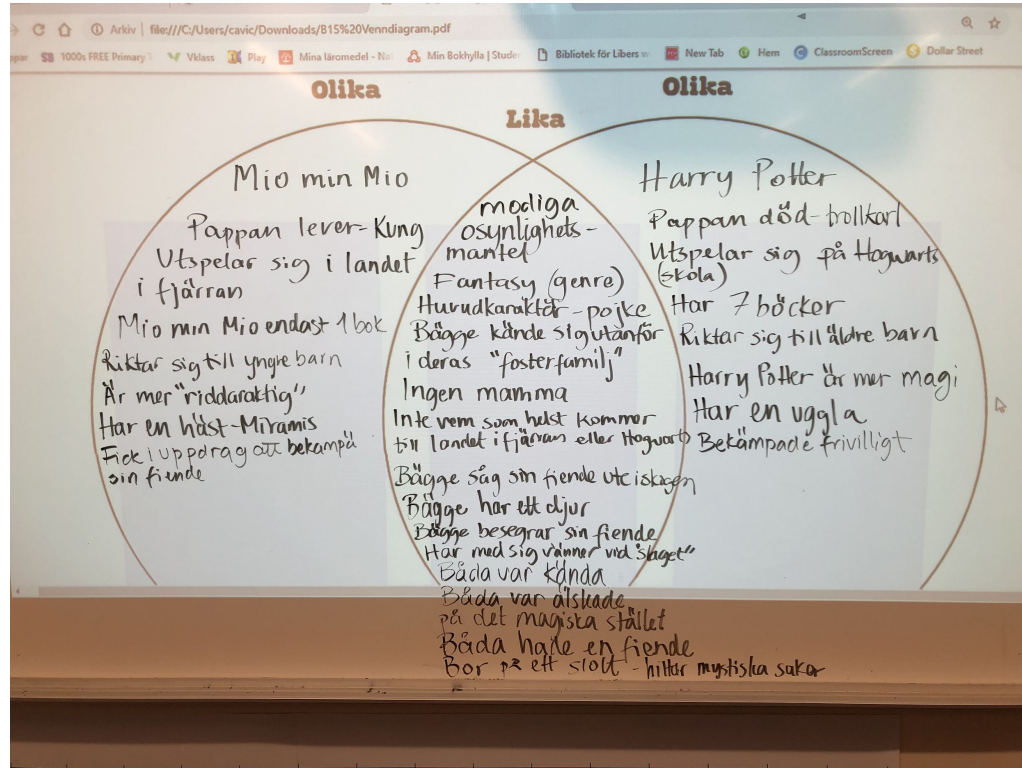 Arkiv | file:///C:/Users/cavic/Downloads/B15%20Venndiagram.pdf
1000s FREE Primary Vklass Play Mina läromedel - Na Min Bokhylla | Stude Bibliotek för Libers w New Tab Hem ClassroomScreen Dollar Street
Olika
Lika
Olika
Mio min Mio
Pappan lever - Kung
Utspelar sig i landet
i fjärran
Mio min Mio endast 1 bok
Riktar sig till yngre barn
Är mer "riddaraktig"
Har en häst - Miramis
Fick i uppdrag att bekämpa
sin fiende
modiga
osynlighets-
mantel
Fantasy (genre)
Huvudkaraktär - pojke
Bägge kände sig utanför
i deras "fosterfamilj"
Ingen mamma
Inte vem som helst kommer
till landet i fjärran eller Hogwarts
Bägge såg sin fiende ute i skogen
Bägge har ett djur
Bägge besegrar sin fiende
Har med sig vänner vid "slaget"
Båda var kända
Båda var älskade
på det magiska stället
Båda hade en fiende
Bor på ett slott - hittar mystiska saker
Harry Potter
Pappan död - trollkarl
Utspelar sig på Hogwarts
(skola)
Har 7 böcker
Riktar sig till äldre barn
Harry Potter är mer magi
Har en uggla
Bekämpade frivilligt